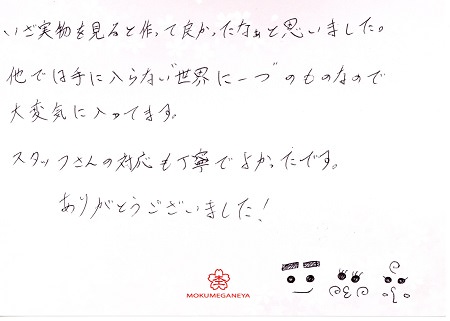 いざ実物を見ると作って良かったなぁと思いました。
他では手に入らない"世界に一つ"のものなので
大変気に入ってます。
スタッフさんの対応も丁寧でよかったです。
ありがとうございました!
MOKUMEGANEYA